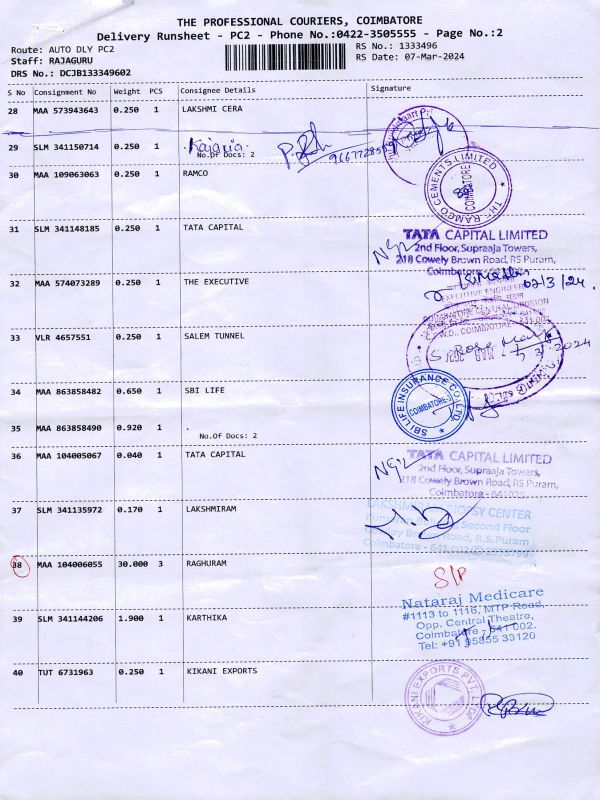 THE PROFESSIONAL COURIERS, COIMBATORE
Delivery Runsheet - PC2 - Phone No.:0422-3505555 - Page No.:2
Route: AUTO DLY PC2
Staff: RAJAGURU
DRS No.: DCJB133349602
RS No.: 1333496
RS Date: 07-Mar-2024
S No Consignment No Weight PCS Consignee Details Signature
28 MAA 573943643 0.250 1 LAKSHMI CERA
29 SLM 341150714 0.250 1 Kajaria
No.Of Docs: 2
30 MAA 109063063 0.250 1 RAMCO
THE RAMCO CEMENTS LIMITED
COIMBATORE
31 SLM 341148185 0.250 1 TATA CAPITAL
TATA CAPITAL LIMITED
2nd Floor, Supraaja Towers,
218 Cowely Brown Road, RS Puram,
Coimbatore
32 MAA 574073289 0.250 1 THE EXECUTIVE
EXECUTIVE ENGINEER
COIMBATORE CENTRAL DIVISION
C.P.W.D., COIMBATORE
33 VLR 4657551 0.250 1 SALEM TUNNEL
34 MAA 863858482 0.650 1 SBI LIFE
SBI LIFE INSURANCE CO LTD
COIMBATORE-2
35 MAA 863858490 0.920 1 .
No.Of Docs: 2
36 MAA 104005067 0.040 1 TATA CAPITAL
TATA CAPITAL LIMITED
2nd Floor, Supraaja Towers,
218 Cowely Brown Road, RS Puram,
Coimbatore - 641002
37 SLM 341135972 0.170 1 LAKSHMIRAM
LAKSHMIRAM BIOPSY CENTER
Second Floor
Road, R.S.Puram
Coimbatore - 641 002
38 MAA 104006055 30.000 3 RAGHURAM
S/P
Nataraj Medicare
#1113 to 1116, MTP Road,
Opp. Central Theatre,
Coimbatore - 641 002.
Tel: +91 95855 33120
39 SLM 341144206 1.900 1 KARTHIKA
40 TUT 6731963 0.250 1 KIKANI EXPORTS
KIKANI EXPORTS PVT. LTD